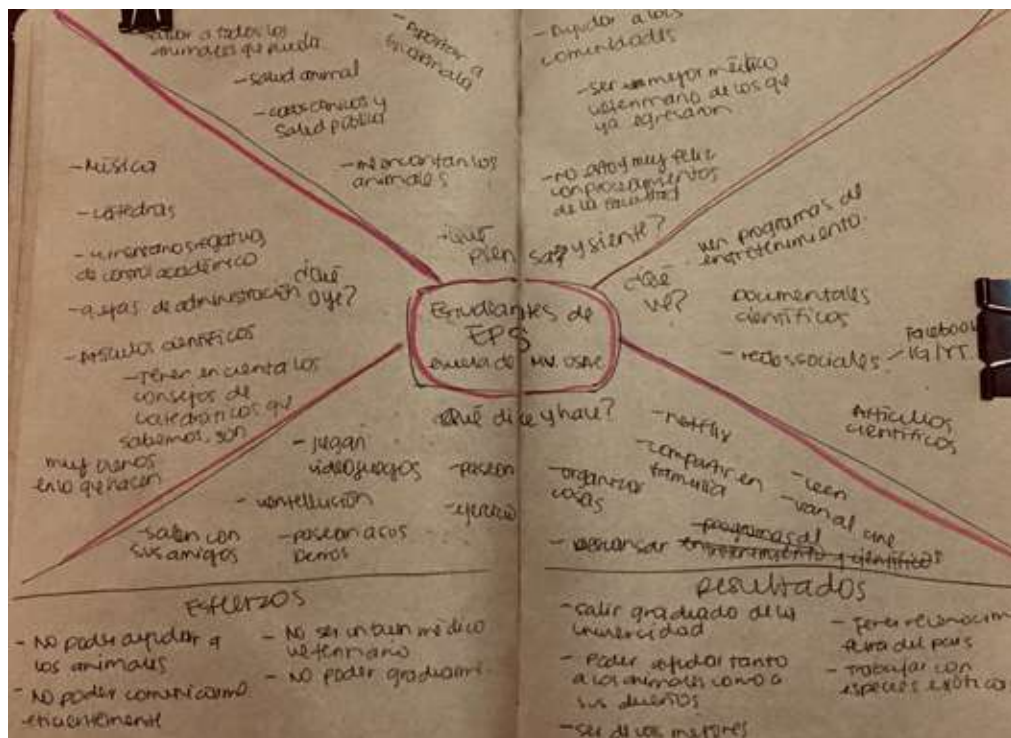 a todos los
animales que pueda
- salud animal
- casos clínicos y
salud pública
- me encantan los
animales
- Aportar a
Guatemala
- Ayudar a las
comunidades
- ser mejor médico
veterinario de los que
ya egresaron
- No estoy muy feliz
con procedimientos
de la facultad
¿Qué
piensa y siente?
- Música
- catedras
negativos
de control académico
- quejas de administración
- Artículos científicos
- Tener en cuenta los
consejos de
catedráticos que
sabemos, son
muy buenos
en lo que hacen
¿Qué
oye?
Estudiantes de
EPS
escuela de MV. USAC
¿Qué
ve?
ven programas de
entretenimiento.
Documentales
científicos
- redes sociales
Facebook
IG/YT
Artículos
científicos
¿Qué dice y hace?
- juegan
videojuegos
- pasean
- ejercicio
- salen con
sus amigos
- pasean a sus
perros
- organizar
cosas
- netflix
- compartir en
familia
- leen
- van al cine
- Descansar
programas de
entretenimiento y científicos
Esfuerzos
- No poder ayudar a
los animales
- No poder comunicarme
eficientemente
- No ser un buen médico
veterinario
- No poder graduarme
Resultados
- salir graduado de la
universidad
- Poder ayudar tanto
a los animales como a
sus dueños
- ser de los mejores
- Tener
fuera del país
- Trabajar con
especies exóticas